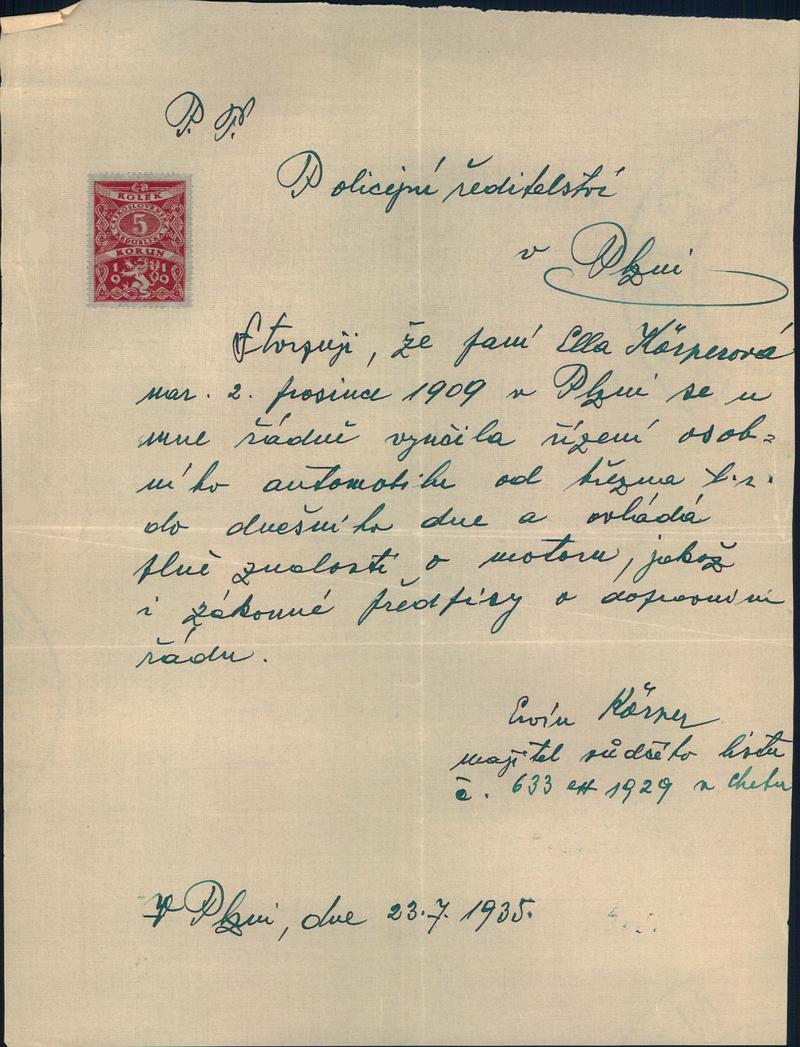 P. T.
Policejní ředitelství
v Plzni
ČR
KOLEK
5
KORUN
1919
Stvrzuji, že paní Ella Körperová
nar. 2. prosince 1909 v Plzni se u
mne řádně vyučila řízení osob=
ního automobilu od března t.r.
do dnešního dne a ovládá
plně znalosti o motoru, jakož
i zákonné předpisy o dopravním
řádu.
Ervín Körper
majitel vůdčího listu
č. 633 1929 v Chebu
V Plzni, dne 23.7. 1935.